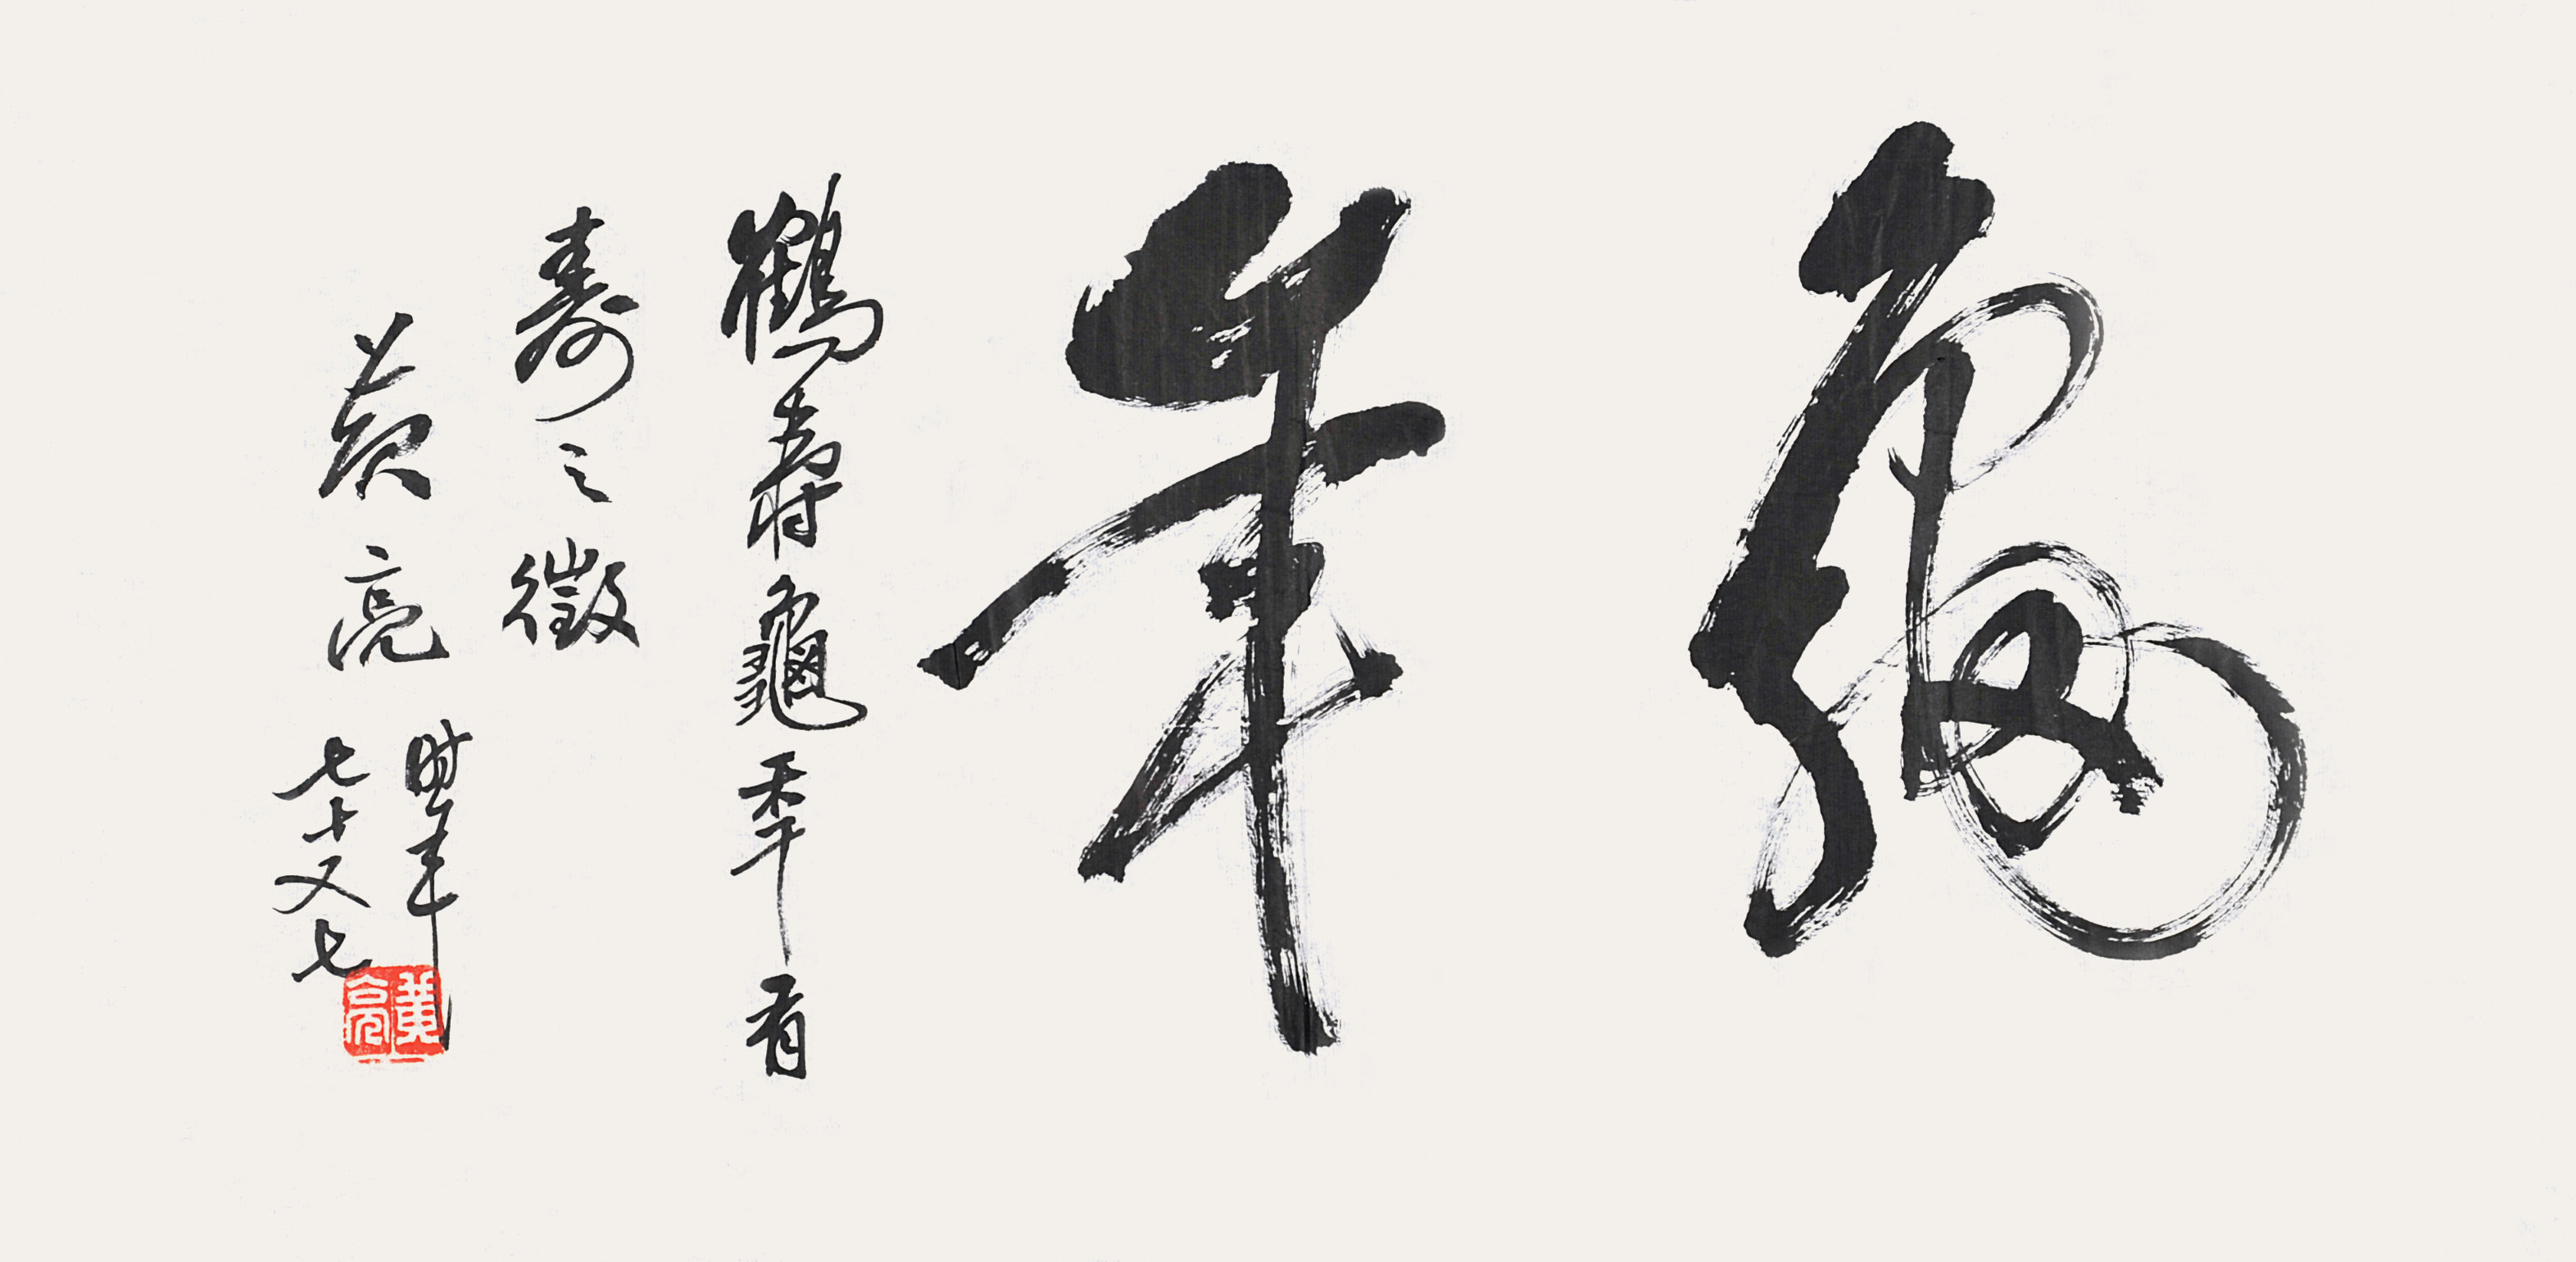 龜年
鶴壽龜秊有
壽之徵
黃亮
時年
七十又七
黃亮